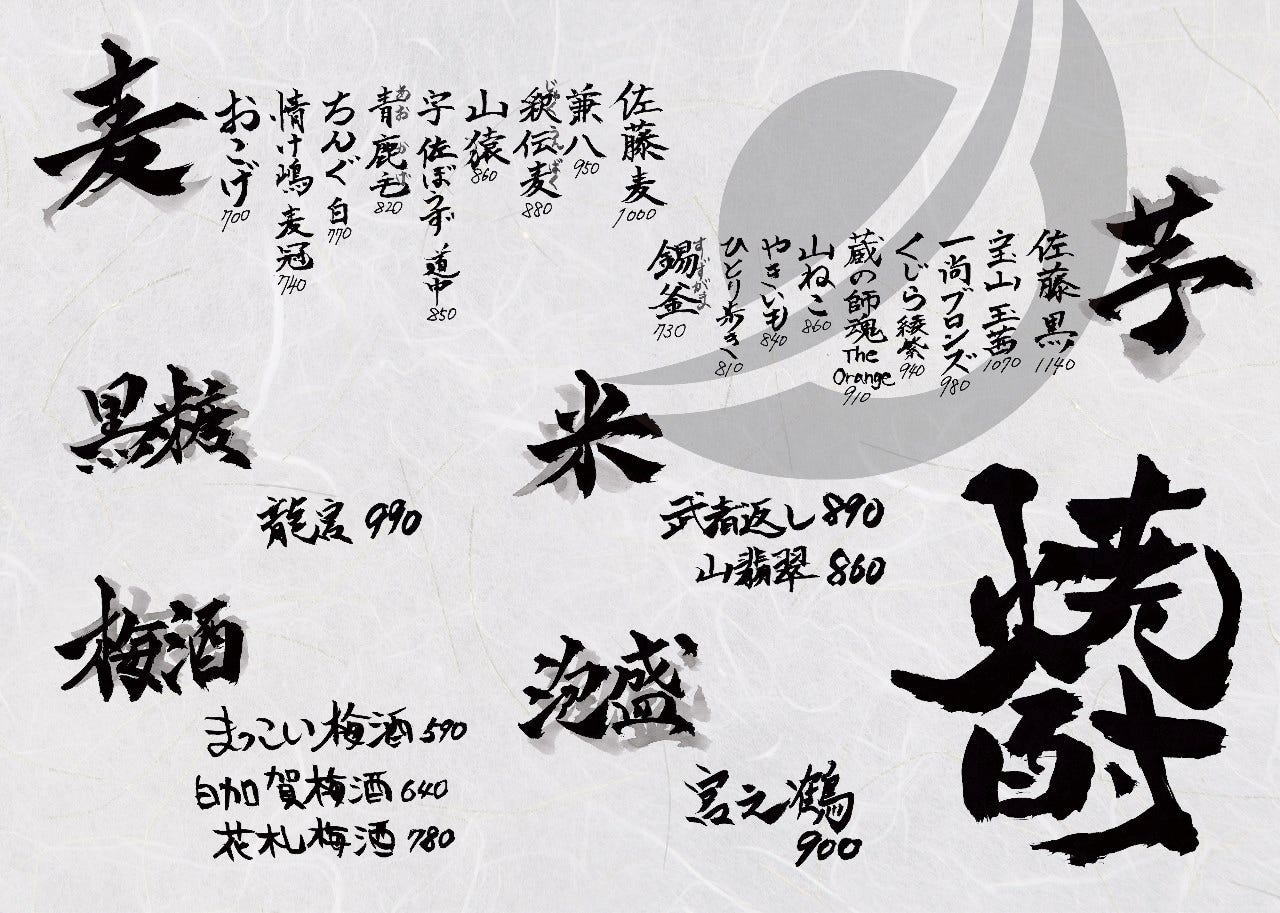 焼酎
芋
佐藤 黒
1140
宝山 玉茜
1070
一尚ブロンズ
980
くじら綾紫
940
蔵の師魂
The
Orange
910
山ねこ
860
やきいも
840
ひとり歩き
810
錫釜
すずがま
730
麦
佐藤 麦
1000
兼八
950
釈伝麦
880
山猿
860
宇佐ぼうず 道中
850
青鹿毛
あおかげ
820
ちんぐ 白
770
情け嶋 麦冠
740
おこげ
700
黒糖
龍宮 990
米
武者返し 890
山翡翠 860
梅酒
まっこい梅酒 590
白加賀梅酒 640
花札梅酒 780
泡盛
宮之鶴
900